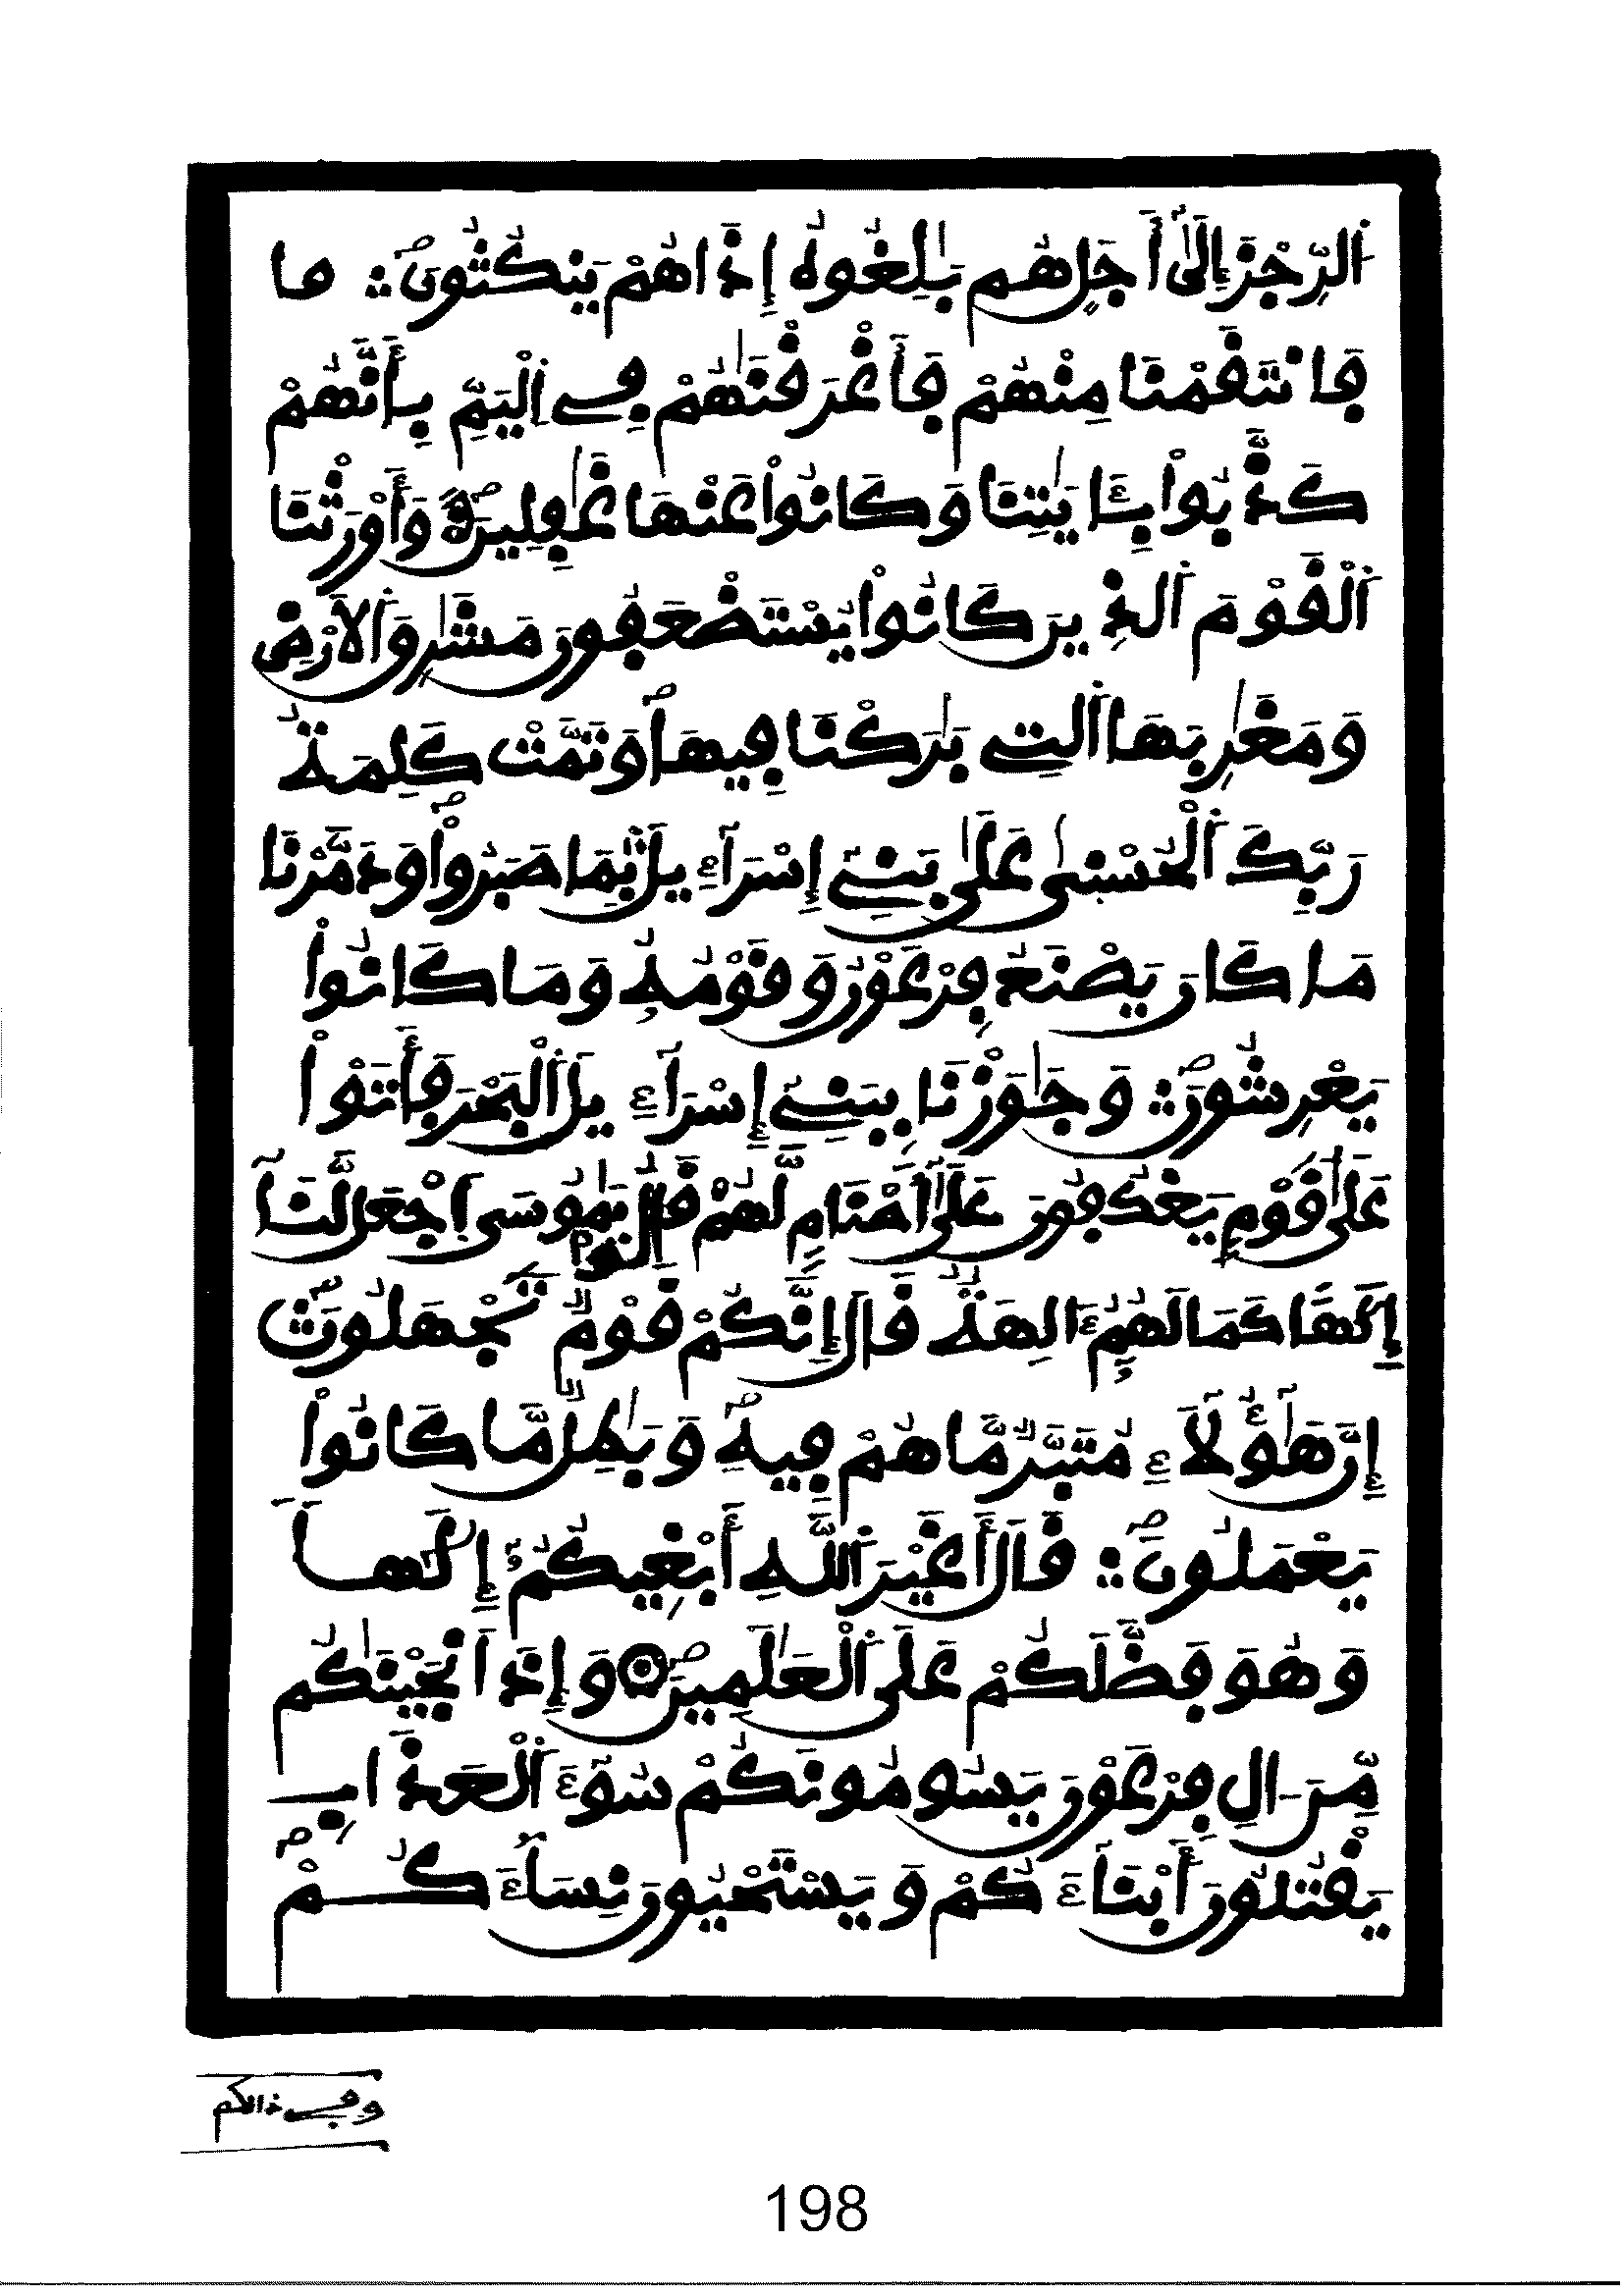 اَ۬لرِّجْزَ إِلَىٰٓ أَجَلٍ هُم بَٰلِغُوهُ إِذَا هُمْ يَنكُثُونَۖ ۞ ها
فَانتَقَمْنَا مِنْهُمْ فَأَغْرَقْنَٰهُمْ فِے اِ۬لْيَمِّ بِأَنَّهُمْ
كَذَّبُواْ بِـَٔايَٰتِنَا وَكَانُواْ عَنْهَا غَٰفِلِينَۖ وَأَوْرَثْنَا
اَ۬لْقَوْمَ اَ۬لذِينَ كَانُواْ يُسْتَضْعَفُونَ مَشَٰرِقَ اَ۬لَارْضِ
وَمَغَٰرِبَهَا اَ۬لتِے بَٰرَكْنَا فِيهَاۖ وَتَمَّتْ كَلِمَةُ
رَبِّكَ اَ۬لْحُسْنَىٰ عَلَىٰ بَنِےٓ إِسْرَآءِيلَ بِمَا صَبَرُواْۖ وَدَمَّرْنَا
مَا كَانَ يَصْنَعُ فِرْعَوْنُ وَقَوْمُهُۥ وَمَا كَانُواْ
يَعْرِشُونَۖ ۞ وَجَٰوَزْنَا بِبَنِےٓ إِسْرَآءِيلَ اَ۬لْبَحْرَ فَأَتَوْاْ
عَلَىٰ قَوْمٍ يَعْكُفُونَ عَلَىٰٓ أَصْنَامٍ لَّهُمْ قَالُواْ يَٰمُوسَى اَ۪جْعَل لَّنَآ
إِلَٰهاً كَمَا لَهُمُۥٓ ءَالِهَةٌۖ قَالَ إِنَّكُمْ قَوْمٌ تَجْهَلُونَۖ
إِنَّ هَٰٓؤُلَآءِ مُتَبَّرٌ مَّا هُمْ فِيهِۖ وَبَٰطِلٌ مَّا كَانُواْ
يَعْمَلُونَۖ ۞ قَالَ أَغَيْرَ اَ۬للَّهِ أَبْغِيكُمُۥٓ إِلَٰهاً
وَهُوَ فَضَّلَكُمْ عَلَى اَ۬لْعَٰلَمِينَۖ وَإِذَ اَنجَيْنَٰكُم
مِّنَ اٰلِ فِرْعَوْنَ يَسُومُونَكُمْ سُوٓءَ اَ۬لْعَذَابِ
يَقْتُلُونَ أَبْنَآءَكُمْ وَيَسْتَحْيُونَ نِسَآءَكُمْۖ
وفے ذالكم
198